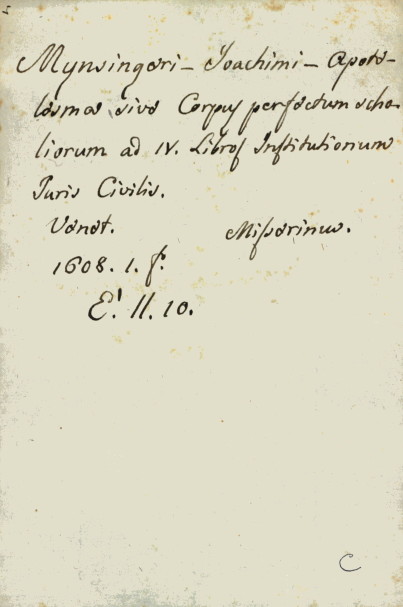 Mynsingeri – Joachimi – Apote-
lesma sive Corpus perfectum scho-
liorum ad IV. Libros Institutionum
Juris Civilis.
Venet. Misserinus.
1608. 1. f.
E! II. 10.
C